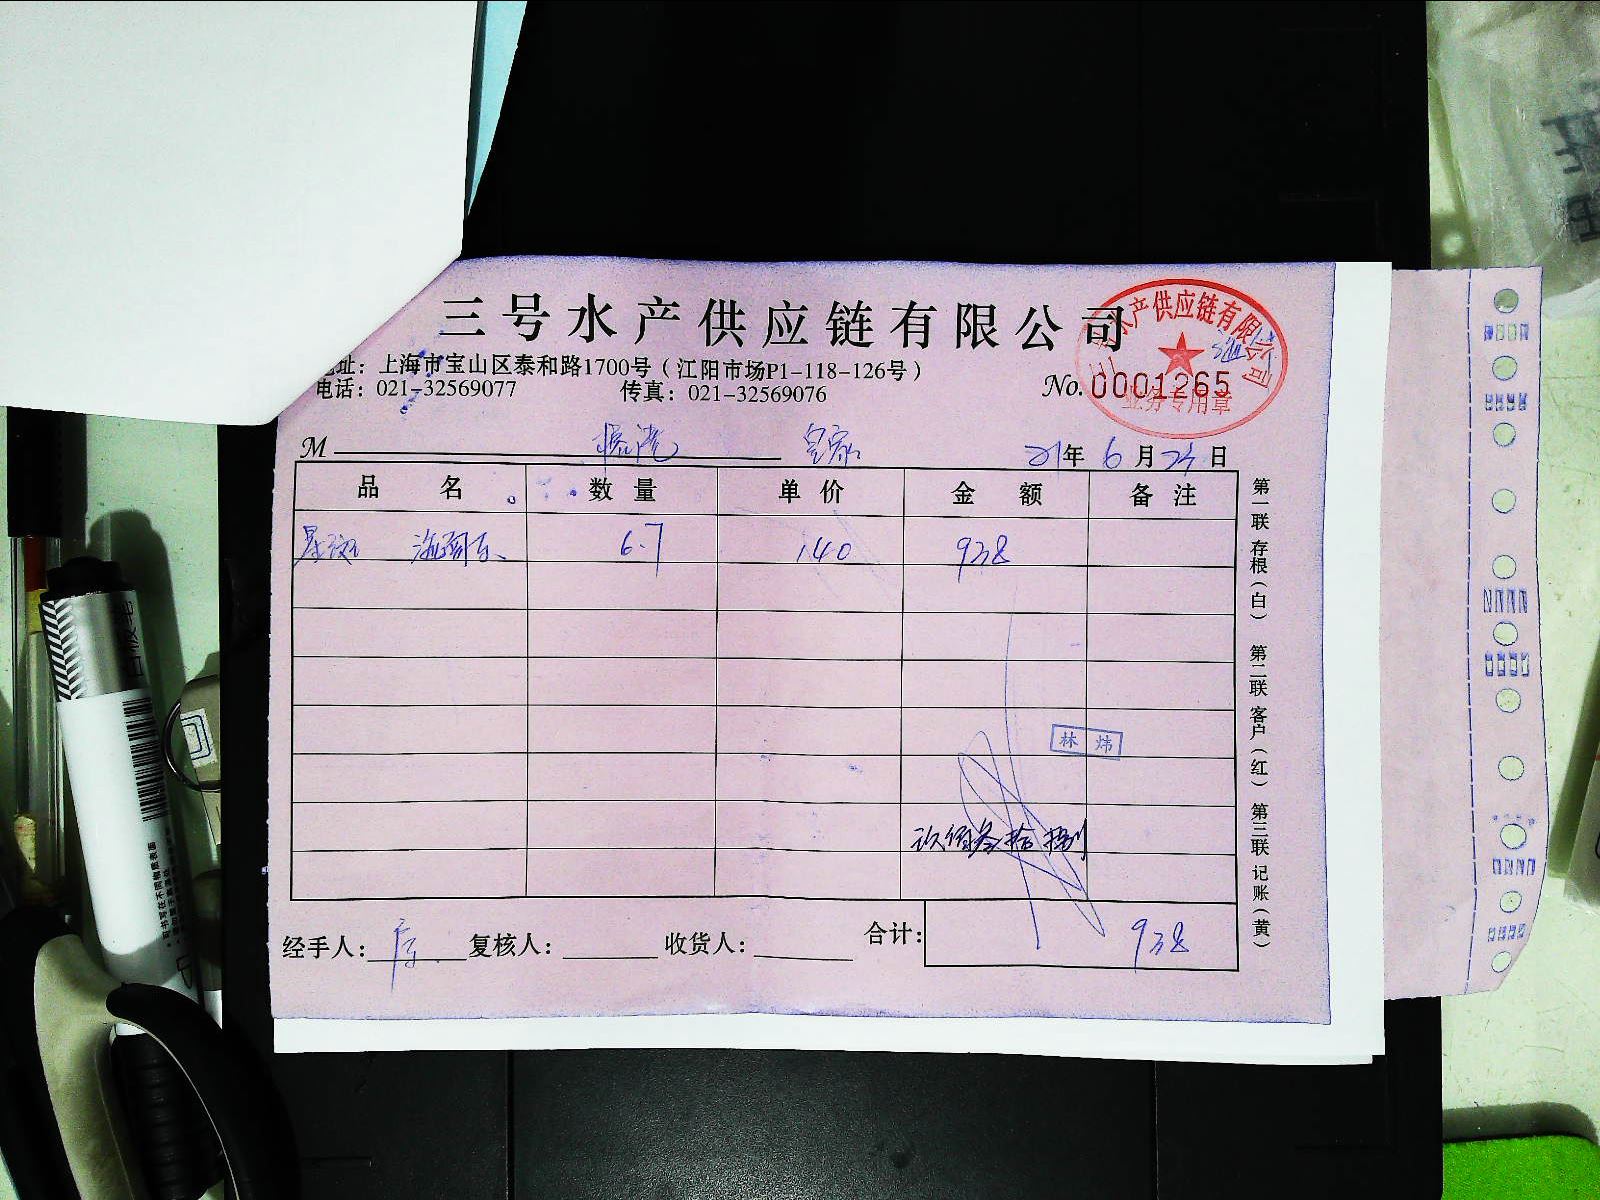 三号水产供应链有限公司
址：上海市宝山区泰和路1700号（江阳市场P1-118-126号）
电话：021-32569077 传真：021-32569076
No. 0001265
水产供应链有限公司
业务专用章
M 皇家 21年6月24日
品 名 数 量 单 价 金 额 备 注
星斑 6.7 140 938
林 炜
玖佰叁拾捌
经手人： 复核人： 收货人： 合计： 938
第一联 存根（白） 第二联 客户（红） 第三联 记账（黄）